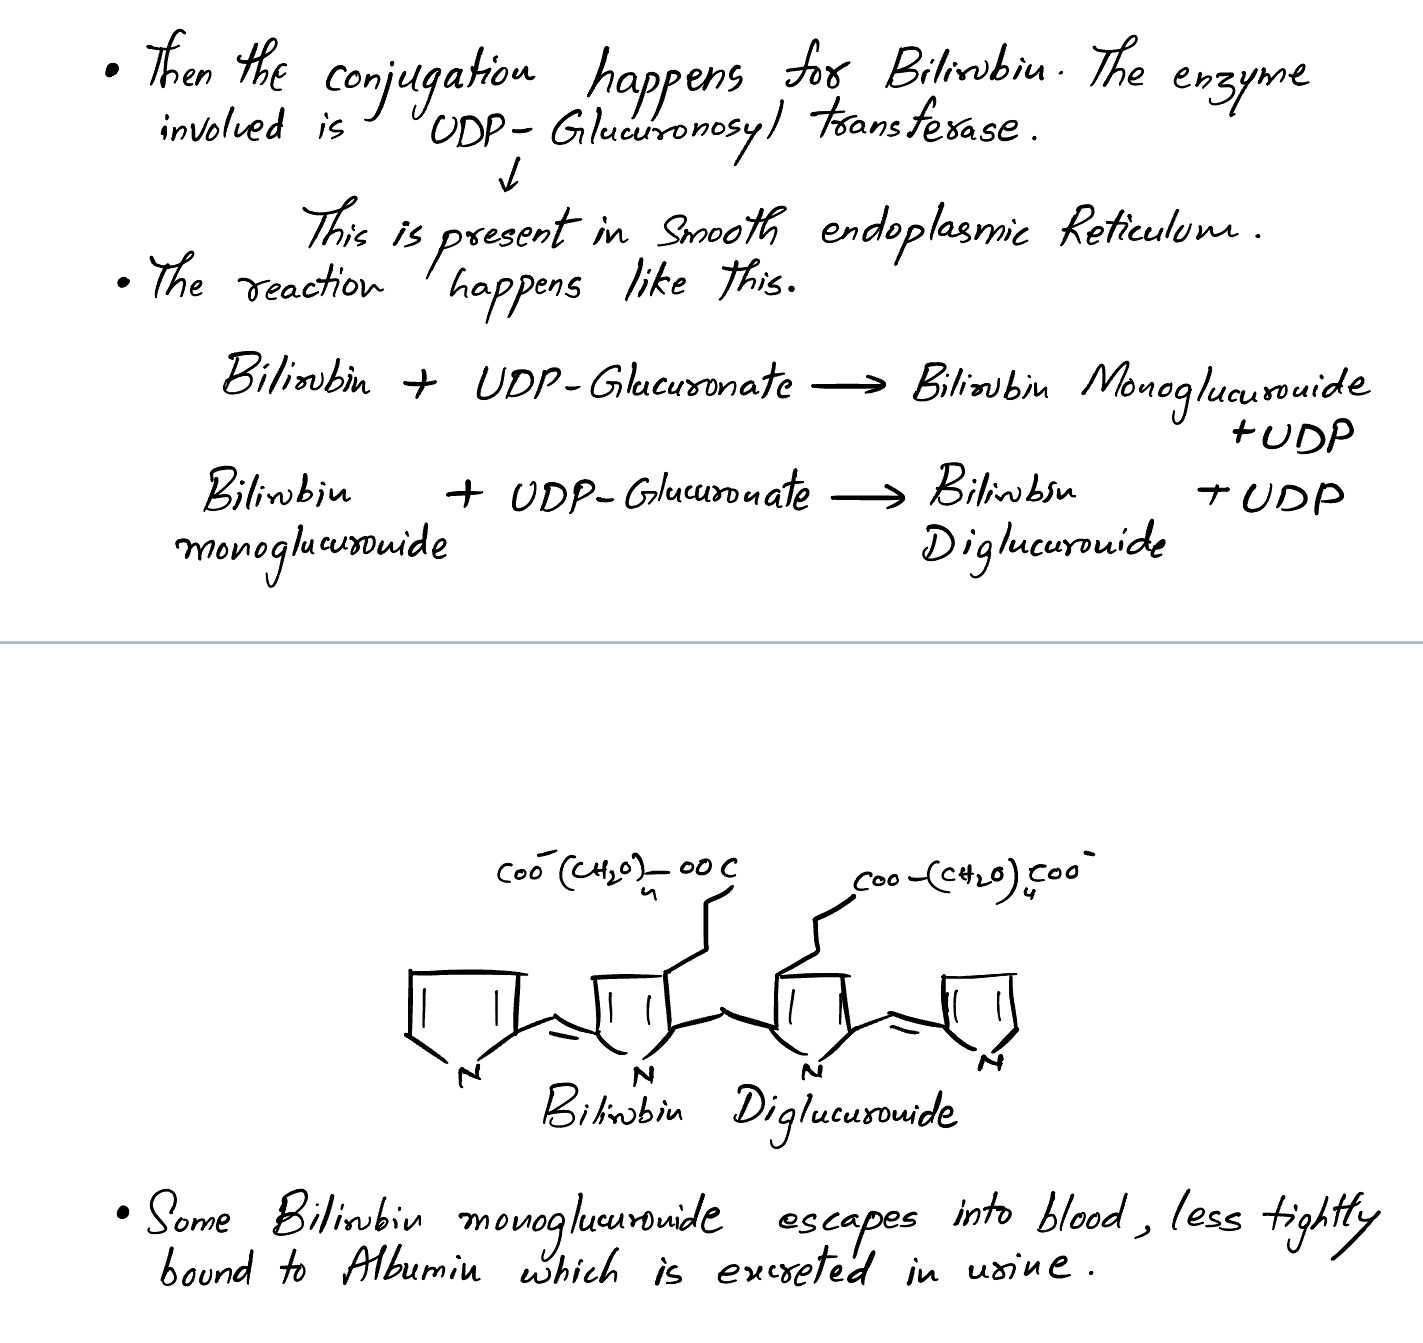 • Then the conjugation happens for Bilirubin. The enzyme
involved is UDP-Glucuronosyl transferase.
↓
This is present in Smooth endoplasmic Reticulum.
• The reaction happens like this.
Bilirubin + UDP-Glucuronate → Bilirubin Monoglucuronide
+ UDP
Bilirubin + UDP-Glucuronate → Bilirubin + UDP
monoglucuronide Diglucuronide
COO⁻(CH₂O)₄—OOC COO—(CH₂O)₄COO⁻
N N N N
Bilirubin Diglucuronide
• Some Bilirubin monoglucuronide escapes into blood, less tightly
bound to Albumin which is excreted in urine.